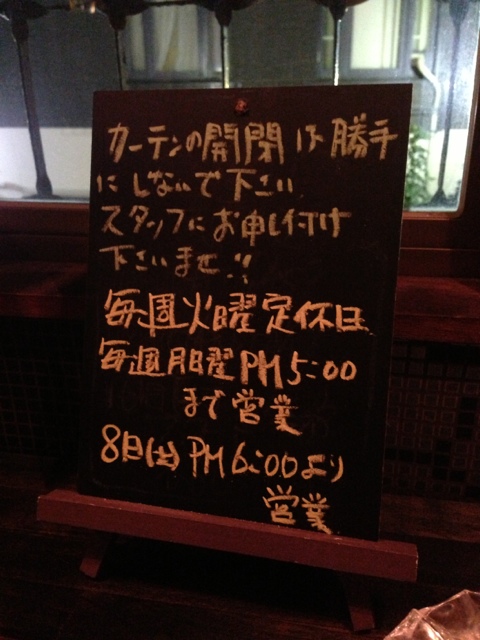 カーテンの開閉は勝手
にしないで下さい
スタッフにお申し付け
下さいませ!!
毎週火曜定休日
毎週月曜PM5:00
まで営業
8日(土)PM6:00より
営業